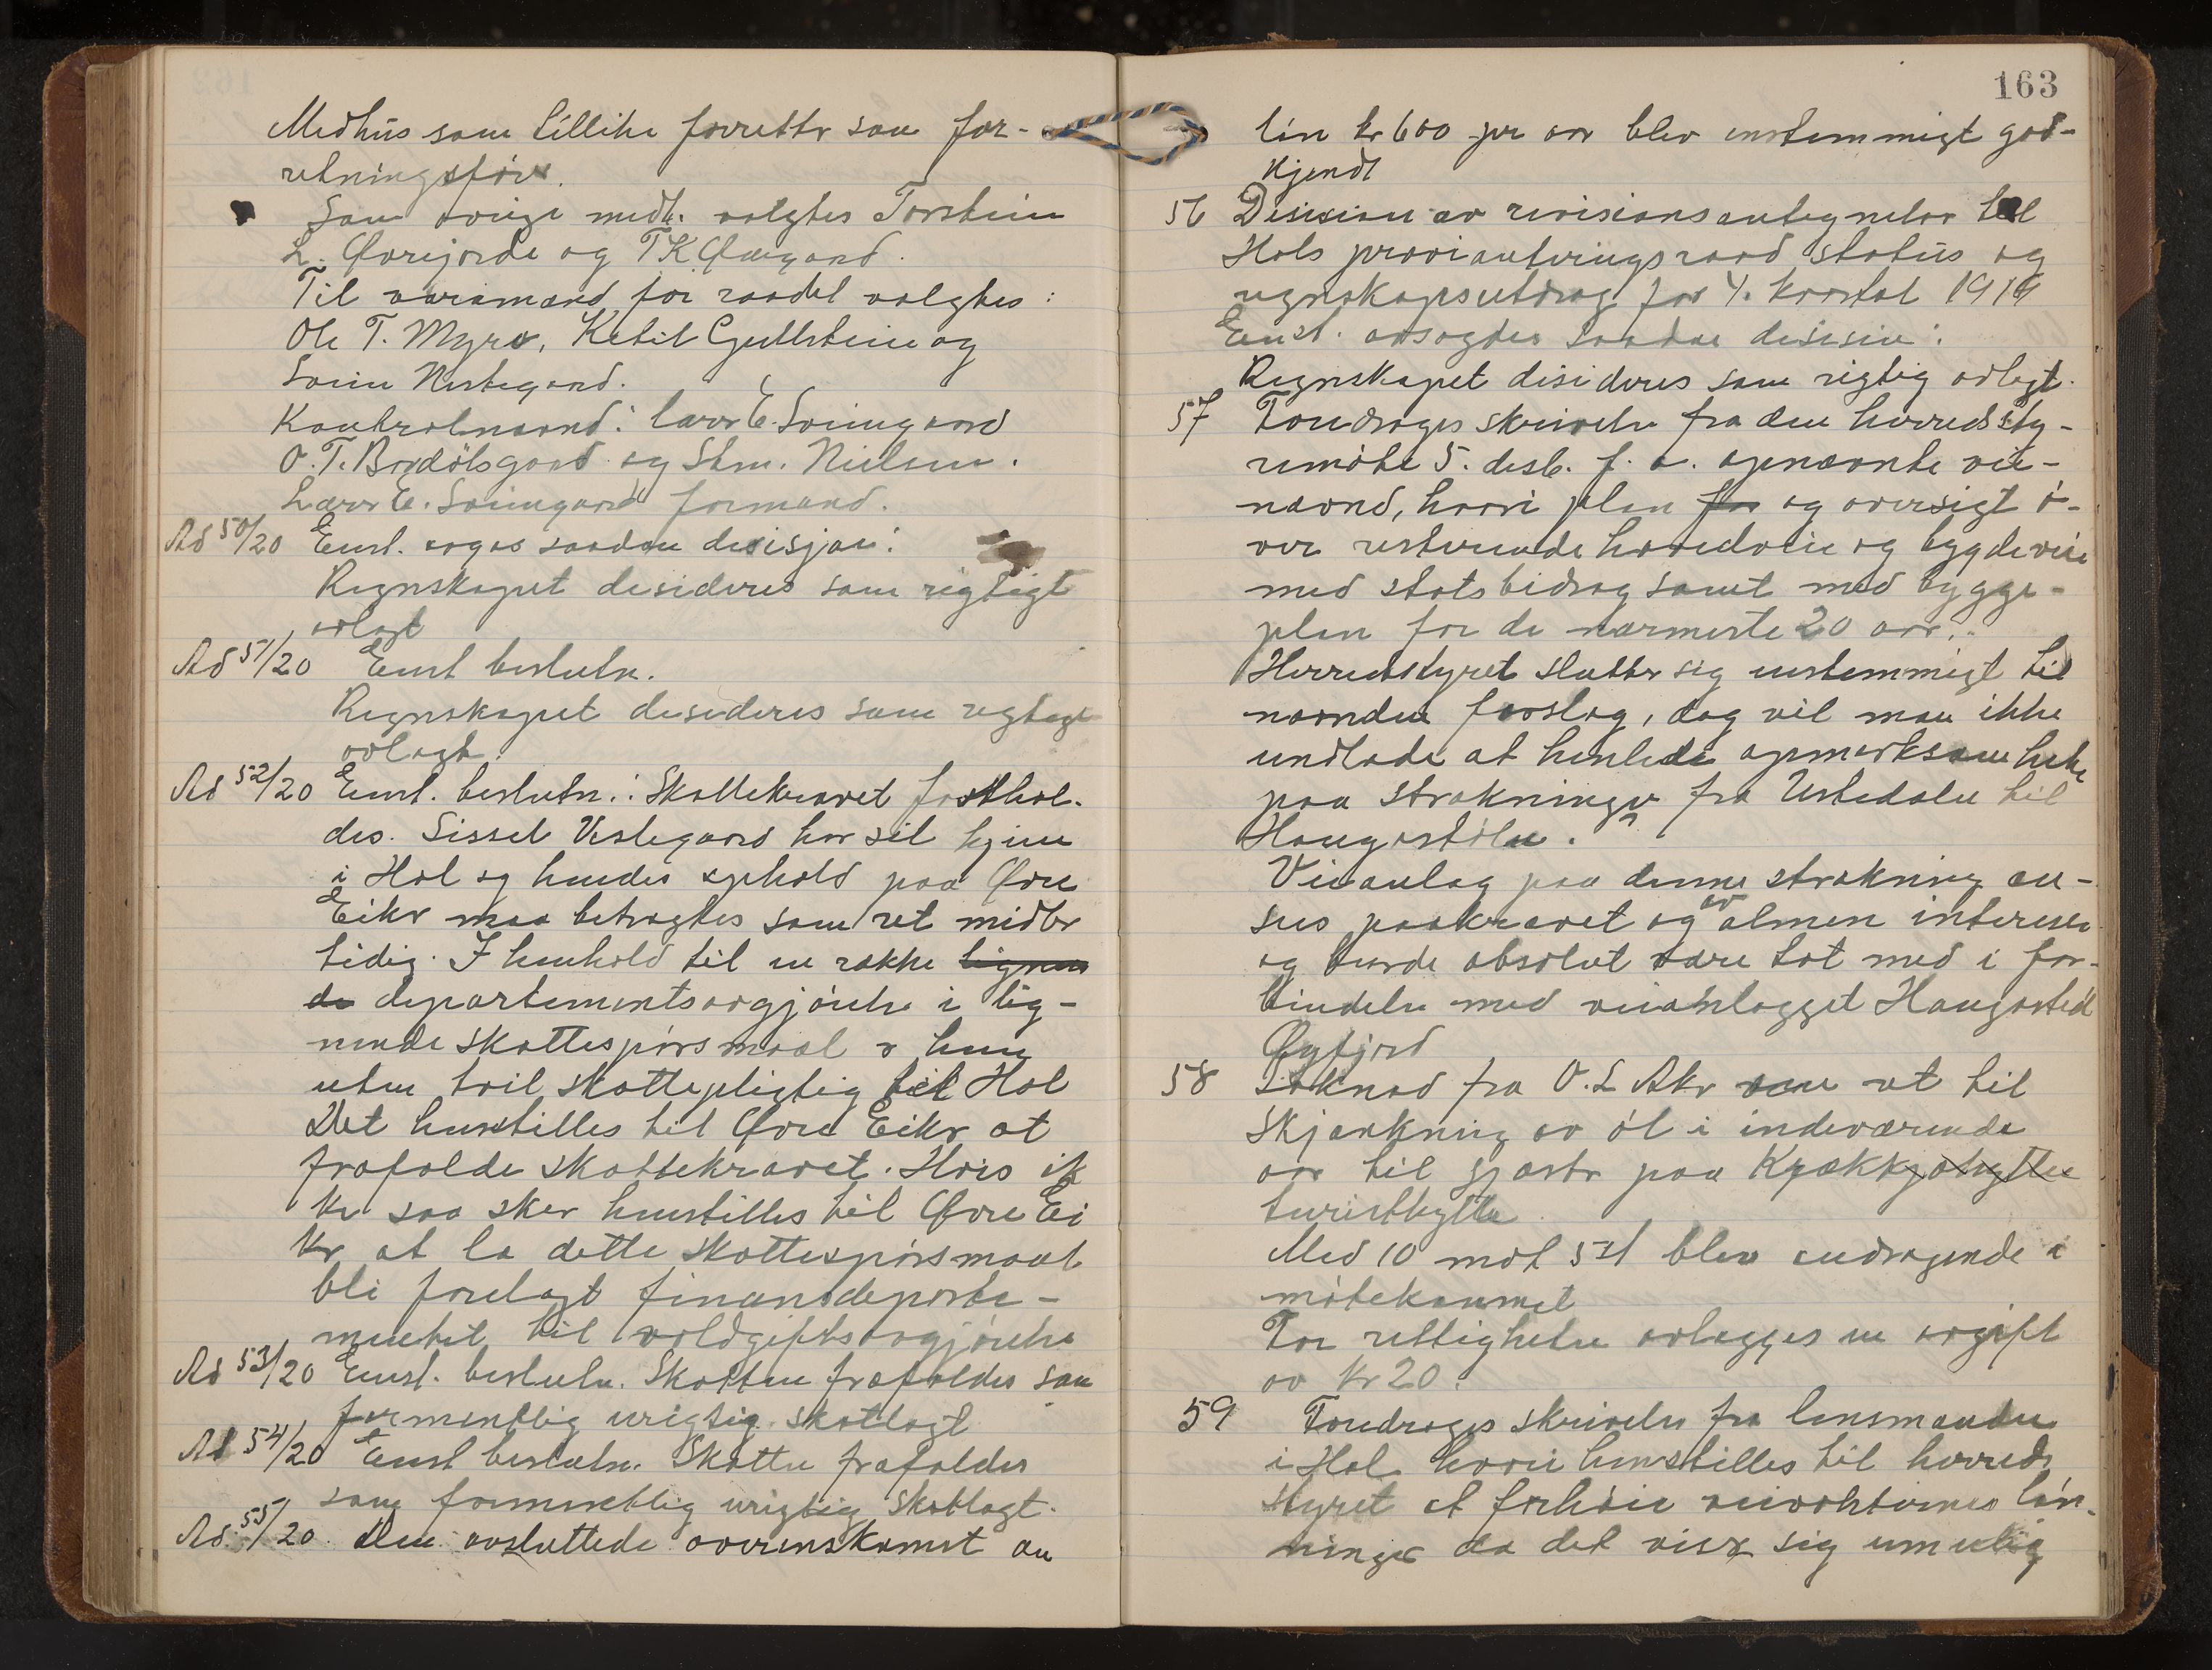 Medhus som tillike forretter som for-
retningsfører.
Som øvrige medl. valgtes Torstein
L. Øvrejorde og T K Øvegard.
Til varamænd for raadet valgtes:
Ole T. Myro, Ketil Gullstein og
Svein Nestegard.
Kontrolnævnd: Lars E. Sveingaard
O. T. Brødølsgard og Stm. Nielsen.
Lars E. Sveingard formand.
Ad 50/20 Enst. avgas saadan desisjon:
Regnskapet desideres som rigtigt
avlagt
Ad 51/20 Enst beslutn.
Regnskapet desideres som regtigt
avlagt.
Ad 52/20 Enst. beslutn.: Skattekravet fasthol-
des. Sissel Vestegard har sit hjem
i Hol og hendes ophold paa Øvre
Eiker maa betragtes som ret midler
tidig. I henhold til en række lignen
de departementsavgjørelse i lig-
nende skattespørsmaal er hun
uten tvil skattepligtig til Hol
Det henstilles til Øvre Eiker at
frafalde skattekravet. Hvis ik
ke saa sker henstilles til Øvre Ei
ker at la dette skattespørsmaal
bli forelagt finansdeparte-
mentet til voldgiftsavgjørelse
Ad 53/20 Enst. beslutn. Skatten frafaldes som
formentlig urigtig skatlagt
Ad 54/20 Enst beslutn. Skatten frafaldes
som formentlig urigtig skatlagt.
Ad. 55/20. Den avsluttede overenskomst an
163
lön kr 600 pr aar blev enstemmigt god-
kjendt
56 Desision av revisionsantegnelser til
Hols provianteringsraad status og
regnskapsutdrag for 4. kvartal 1919
Enst. avsagdes saadan desision:
Regnskapet desideres som rigtig avlagt.
57 Foredrages skrivelse fra den herredssty-
remøte 5. desb. f. a. opnævnte vei-
nævnd, hvori plan for og oversigt ø-
ver resterende hovedveie og bygdeveie
med statsbidrag samt med bygge-
plan for de nærmeste 20 aar.
Herredstyret slutter sig enstemmigt til
nævnden forslag, dog vil man ikke
undlade at henlede opmerksomheten
paa strækninger fra Ustedalen til
Haugastölen.
Veianlæg paa denne strækning an-
sees paakrævet og av almen interesse
og burde absolut være tat med i for-
bindelse med veianlægget Haugastöl
Øyfjord
58 Søknad fra O. L Aker om ret til
skjænkning av öl i indeværende
aar til gjæster paa Krækkjahytten
turisthytte
Med 10 mot 5 st blev andragende i
møtekommet
For rettigheten avlægges en avgift
av kr 20.
59 Foredrages skrivelse fra lensmanden
i Hol hvori henstilles til herreds
styret at forhøie veivokternes løn-
ninger da det viser sig umulig